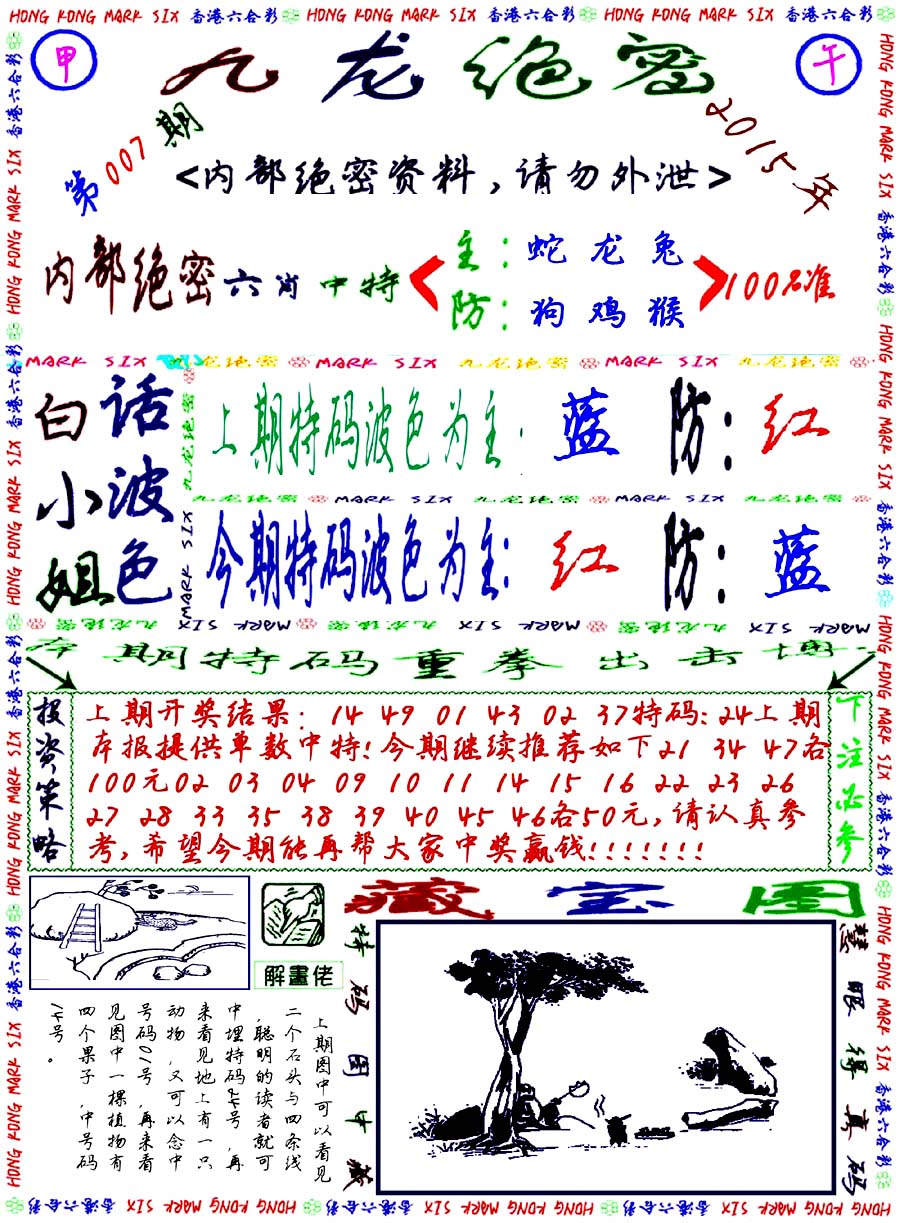 HONG KONG MARK SIX 香港六合彩 HONG KONG MARK SIX 香港六合彩 HONG KONG MARK SIX 香港六合彩
甲 九龙绝密 午
第007期 2015年
<内部绝密资料,请勿外泄>
内部绝密六肖中特
主:蛇龙兔
防:狗鸡猴
100%准
MARK SIX 九龙绝密 MARK SIX 九龙绝密 MARK SIX 九龙绝密
白话小波姐色
上期特码波色为主:蓝 防:红
九龙绝密 MARK SIX 九龙绝密 MARK SIX 九龙绝密
今期特码波色为主:红 防:蓝
九龙绝密 MARK SIX 九龙绝密 MARK SIX 九龙绝密 MARK SIX
本期特码重拳出击博
投资策略
上期开奖结果:14 49 01 43 02 37特码:24上期
本报提供单数中特!今期继续推荐如下21 34 47各
100元02 03 04 09 10 11 14 15 16 22 23 26
27 28 33 35 38 39 40 45 46各50元,请认真参
考,希望今期能再帮大家中奖赢钱!!!!!!!
下注必参
藏宝图
解畫佬
上期图中可以看见
二个石头与四条线
,聪明的读者就可
中埋特码24号,再
来看见地上有一只
动物,又可以念中
号码01号,再来看
见图中一棵植物有
四个果子,中号码
14号。
特码图中藏
慧眼得真码
HONG KONG MARK SIX 香港六合彩 HONG KONG MARK SIX 香港六合彩 HONG KONG MARK SIX 香港六合彩